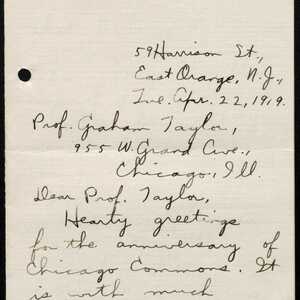 59 Harrison St.,
East Orange, N.J.,
Tue. Apr. 22, 1919.
Prof. Graham Taylor,
955 W. Grand Ave.,
Chicago, Ill.
Dear Prof. Taylor,
Hearty greetings
for the anniversary of
Chicago Commons. It
is worth much